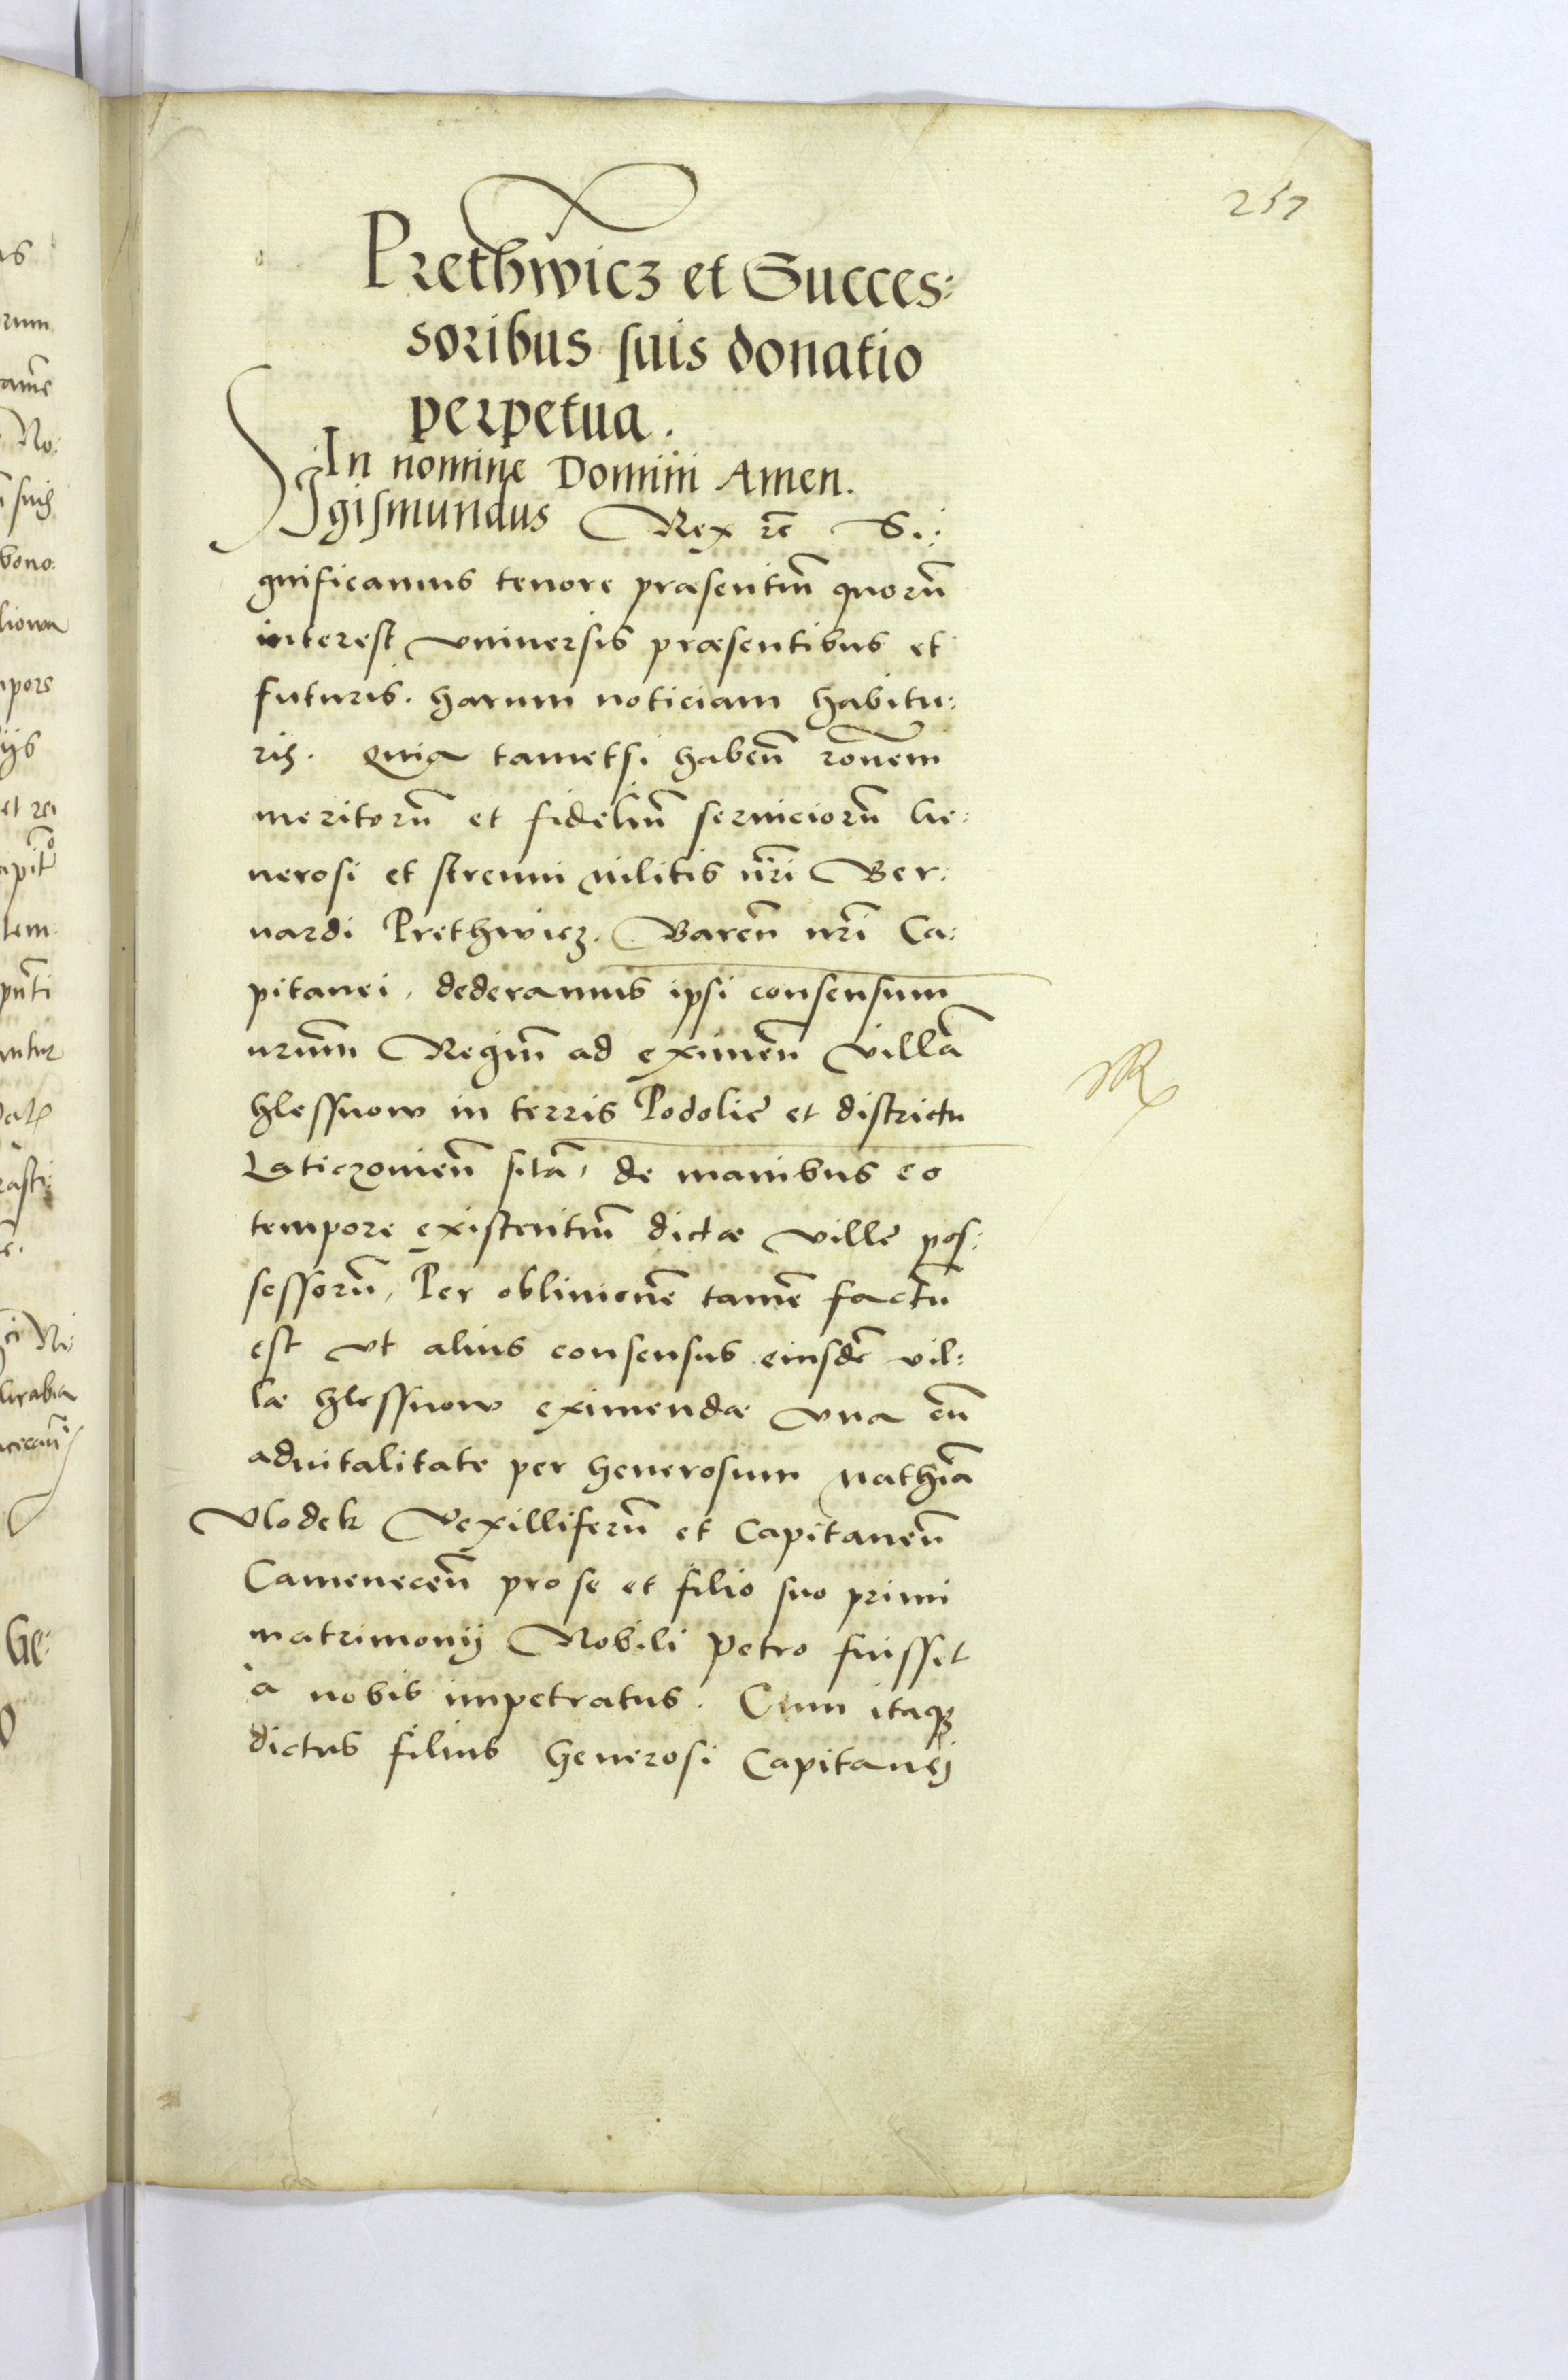 257
Prethwicz et Succes:
soribus suis donatio
perpetua.
In nomine Domini Amen.
Sigismundus Rex rc̃ Si:
gnificamus tenore præsentiũ quorũ
interest vniuersis præsentibus et
futuris. harum noticiam habitu:
ris. Quia tametsi habeñ rõnem
meritorũ et fideliũ seruiciorũ Ge:
nerosi et strenui militis nr̃i Ber:
nardi Prethwicz. Bareñ nr̃i Ca:
pitanei, dederamus ipsi consensum
nrũm Regiũ ad eximeñ villã
hlessnow in terris Podolie et districtu
Laticzovieñ sitã, de manibus eo
tempore existentiũ dictæ ville pos:
sessorũ, Per obliuionẽ tamẽ factũ
est vt alius consensus eiusdẽ vil:
læ hlessnow eximendæ vna cũ
aduitalitate per Generosum Mathiã
Vlodek Vexilliferũ et Capitaneũ
Cameneceñ pro se et filio suo primi
matrimonij Nobili Petro fuisset
à nobis impetratus. Cum itaq;
dictus filius Generosi Capitanej